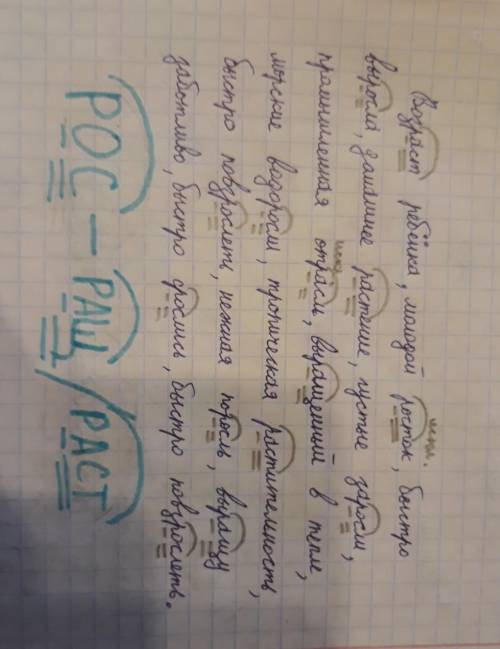 Возраст ребёнка, молодой росток, быстро
искл.
выросла, домашнее растение, густые заросли,
промышленная отрасль, выращенный в тепле,
искл.
морские водоросли, тропическая растительность,
быстро повзрослеть, нежная поросль, выращу
заботливо, быстро рослись, быстро повзрослеть.
РОС – РАЩ / РАСТ